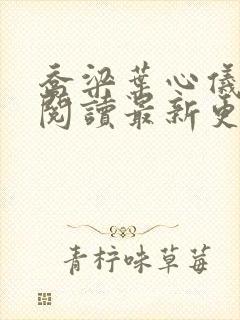 喬梁葉心儀
閱讀最新更
青柠味草莓